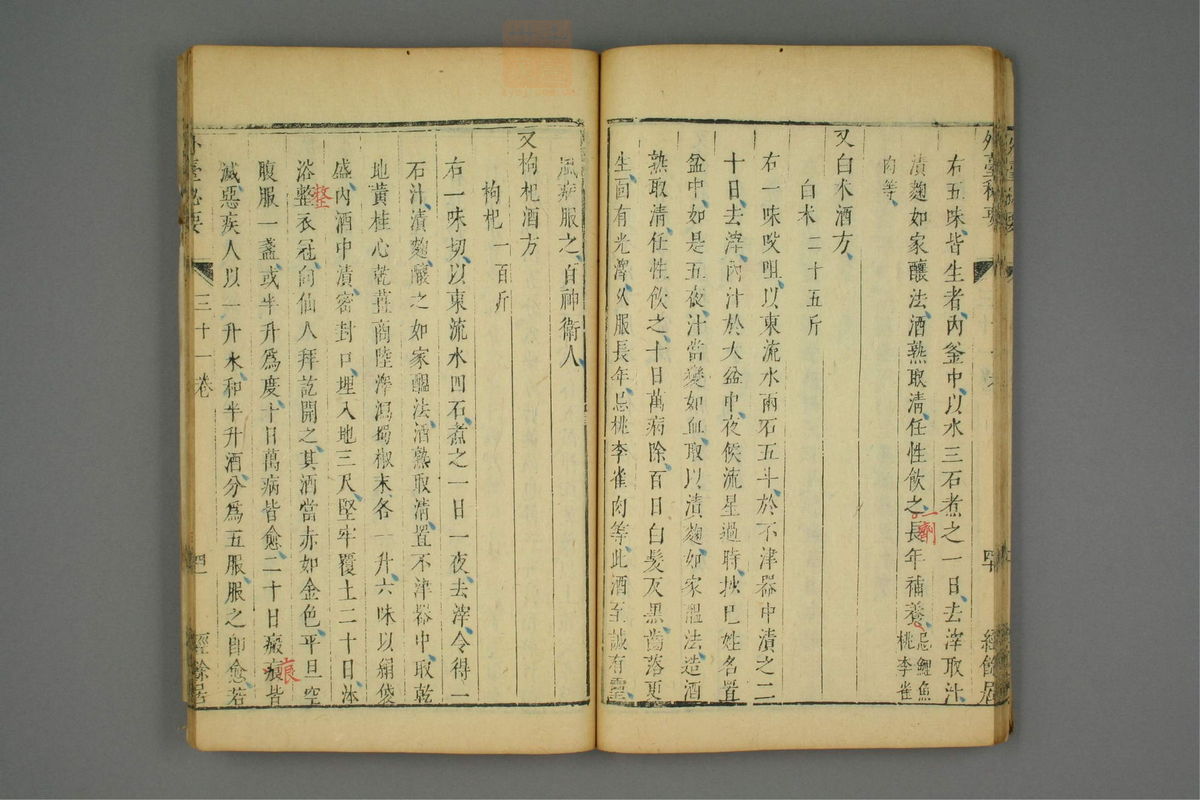 外臺秘要
右五味皆生者內釜中以水三石煮之一日去滓取汁
漬麴如家釀法酒熟取清任性飲之長年補養忌鯉魚桃李雀
肉等
一劑
又白朮酒方
白朮二十五斤
右一味㕮咀以東流水兩石五斗於不津器中漬之二
十日去滓內汁於大盆中夜候流星過時抄已姓名置
盆中如是五夜汁當變如血取以漬麴如家醞法造酒
熟取清任性飲之十日萬病除百日白髮反黑齒落更
生面有光澤久服長年忌桃李雀肉等此酒至誠有靈
風病服之百神衛人
又枸杞酒方
枸杞一百斤
右一味切以東流水四石煮之一日一夜去滓令得一
石汁漬麴釀之如家醞法酒熟取清置不津器中取乾
地黃桂心乾薑商陸澤瀉蜀椒末各一升六味以絹袋
盛內酒中漬密封口埋入地三尺堅牢覆土二十日沐
浴整衣冠向仙人拜訖開之其酒當赤如金色平旦空
整
腹服一盞或半升為度十日萬病皆愈二十日瘢痕皆
痕
滅惡疾人以一升水和半升酒分為五服服之即愈若
外臺祕要
三十一卷
經餘居